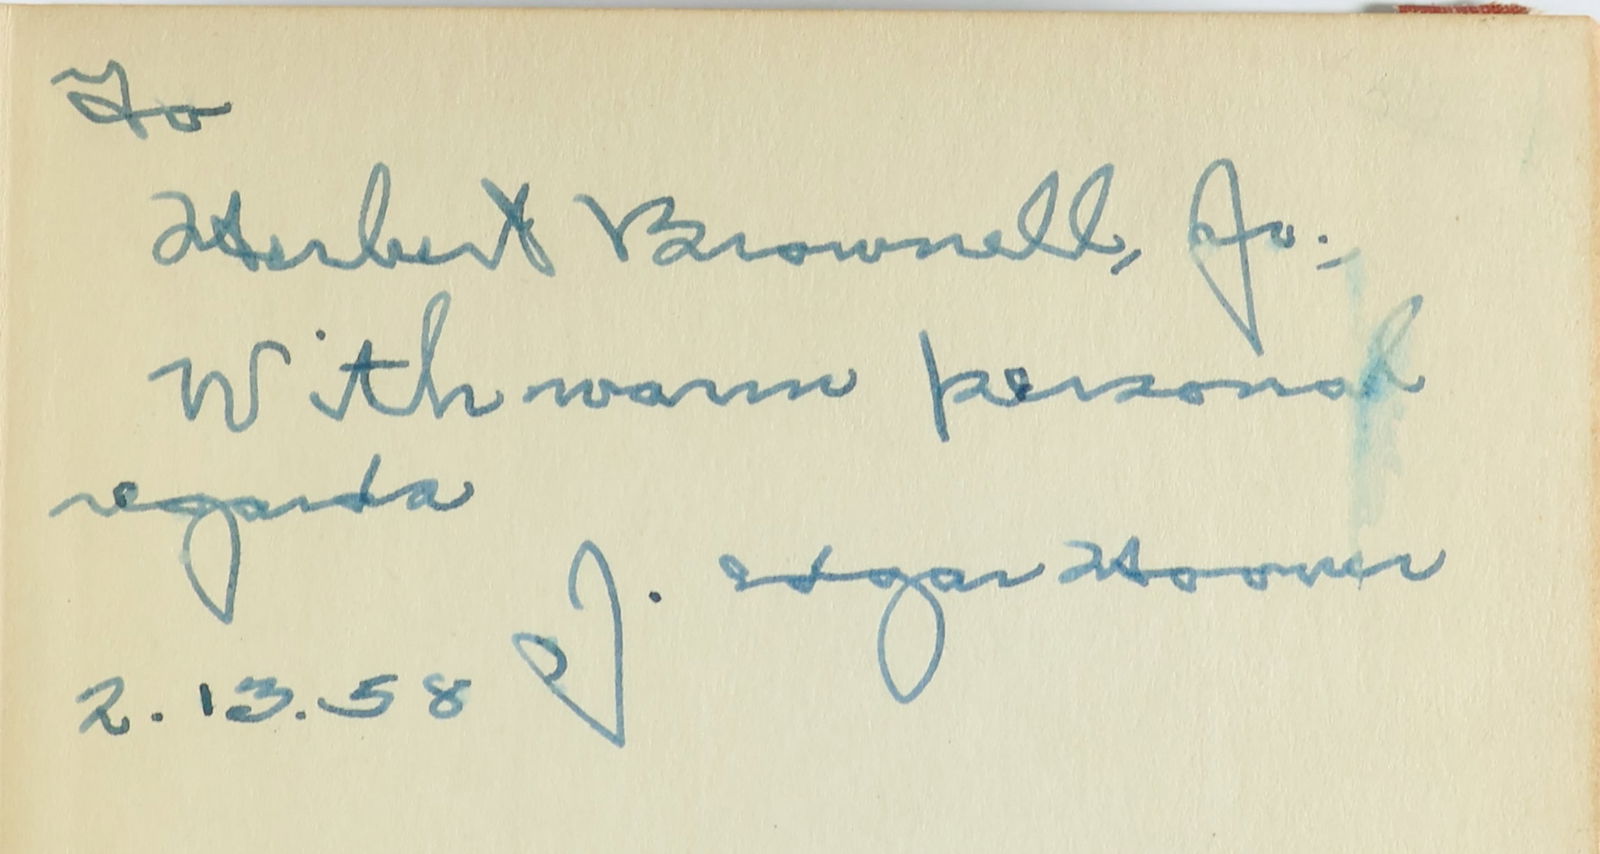 To
Herbert Brownell, Jr.,
With warm personal
regards
J. Edgar Hoover
2.13.58